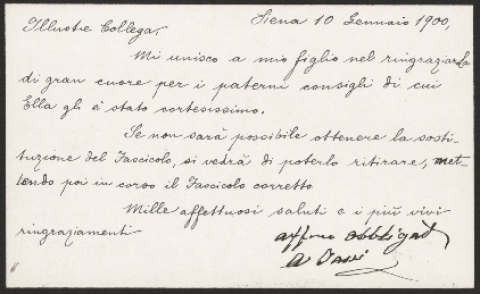 Illustre Collega,
Siena 10 Gennaio 1900,
Mi unisco a mio figlio nel ringraziarLa
di gran cuore per i paterni consigli di cui
Ella gli è stato cortesissimo.
Se non sarà possibile ottenere la sosti-
tuzione del Fascicolo, si vedrà di poterlo ritirare, met-
tendo poi in corso il Fascicolo corretto
Mille affettuosi saluti e i più vivi
ringraziamenti
affmo
A